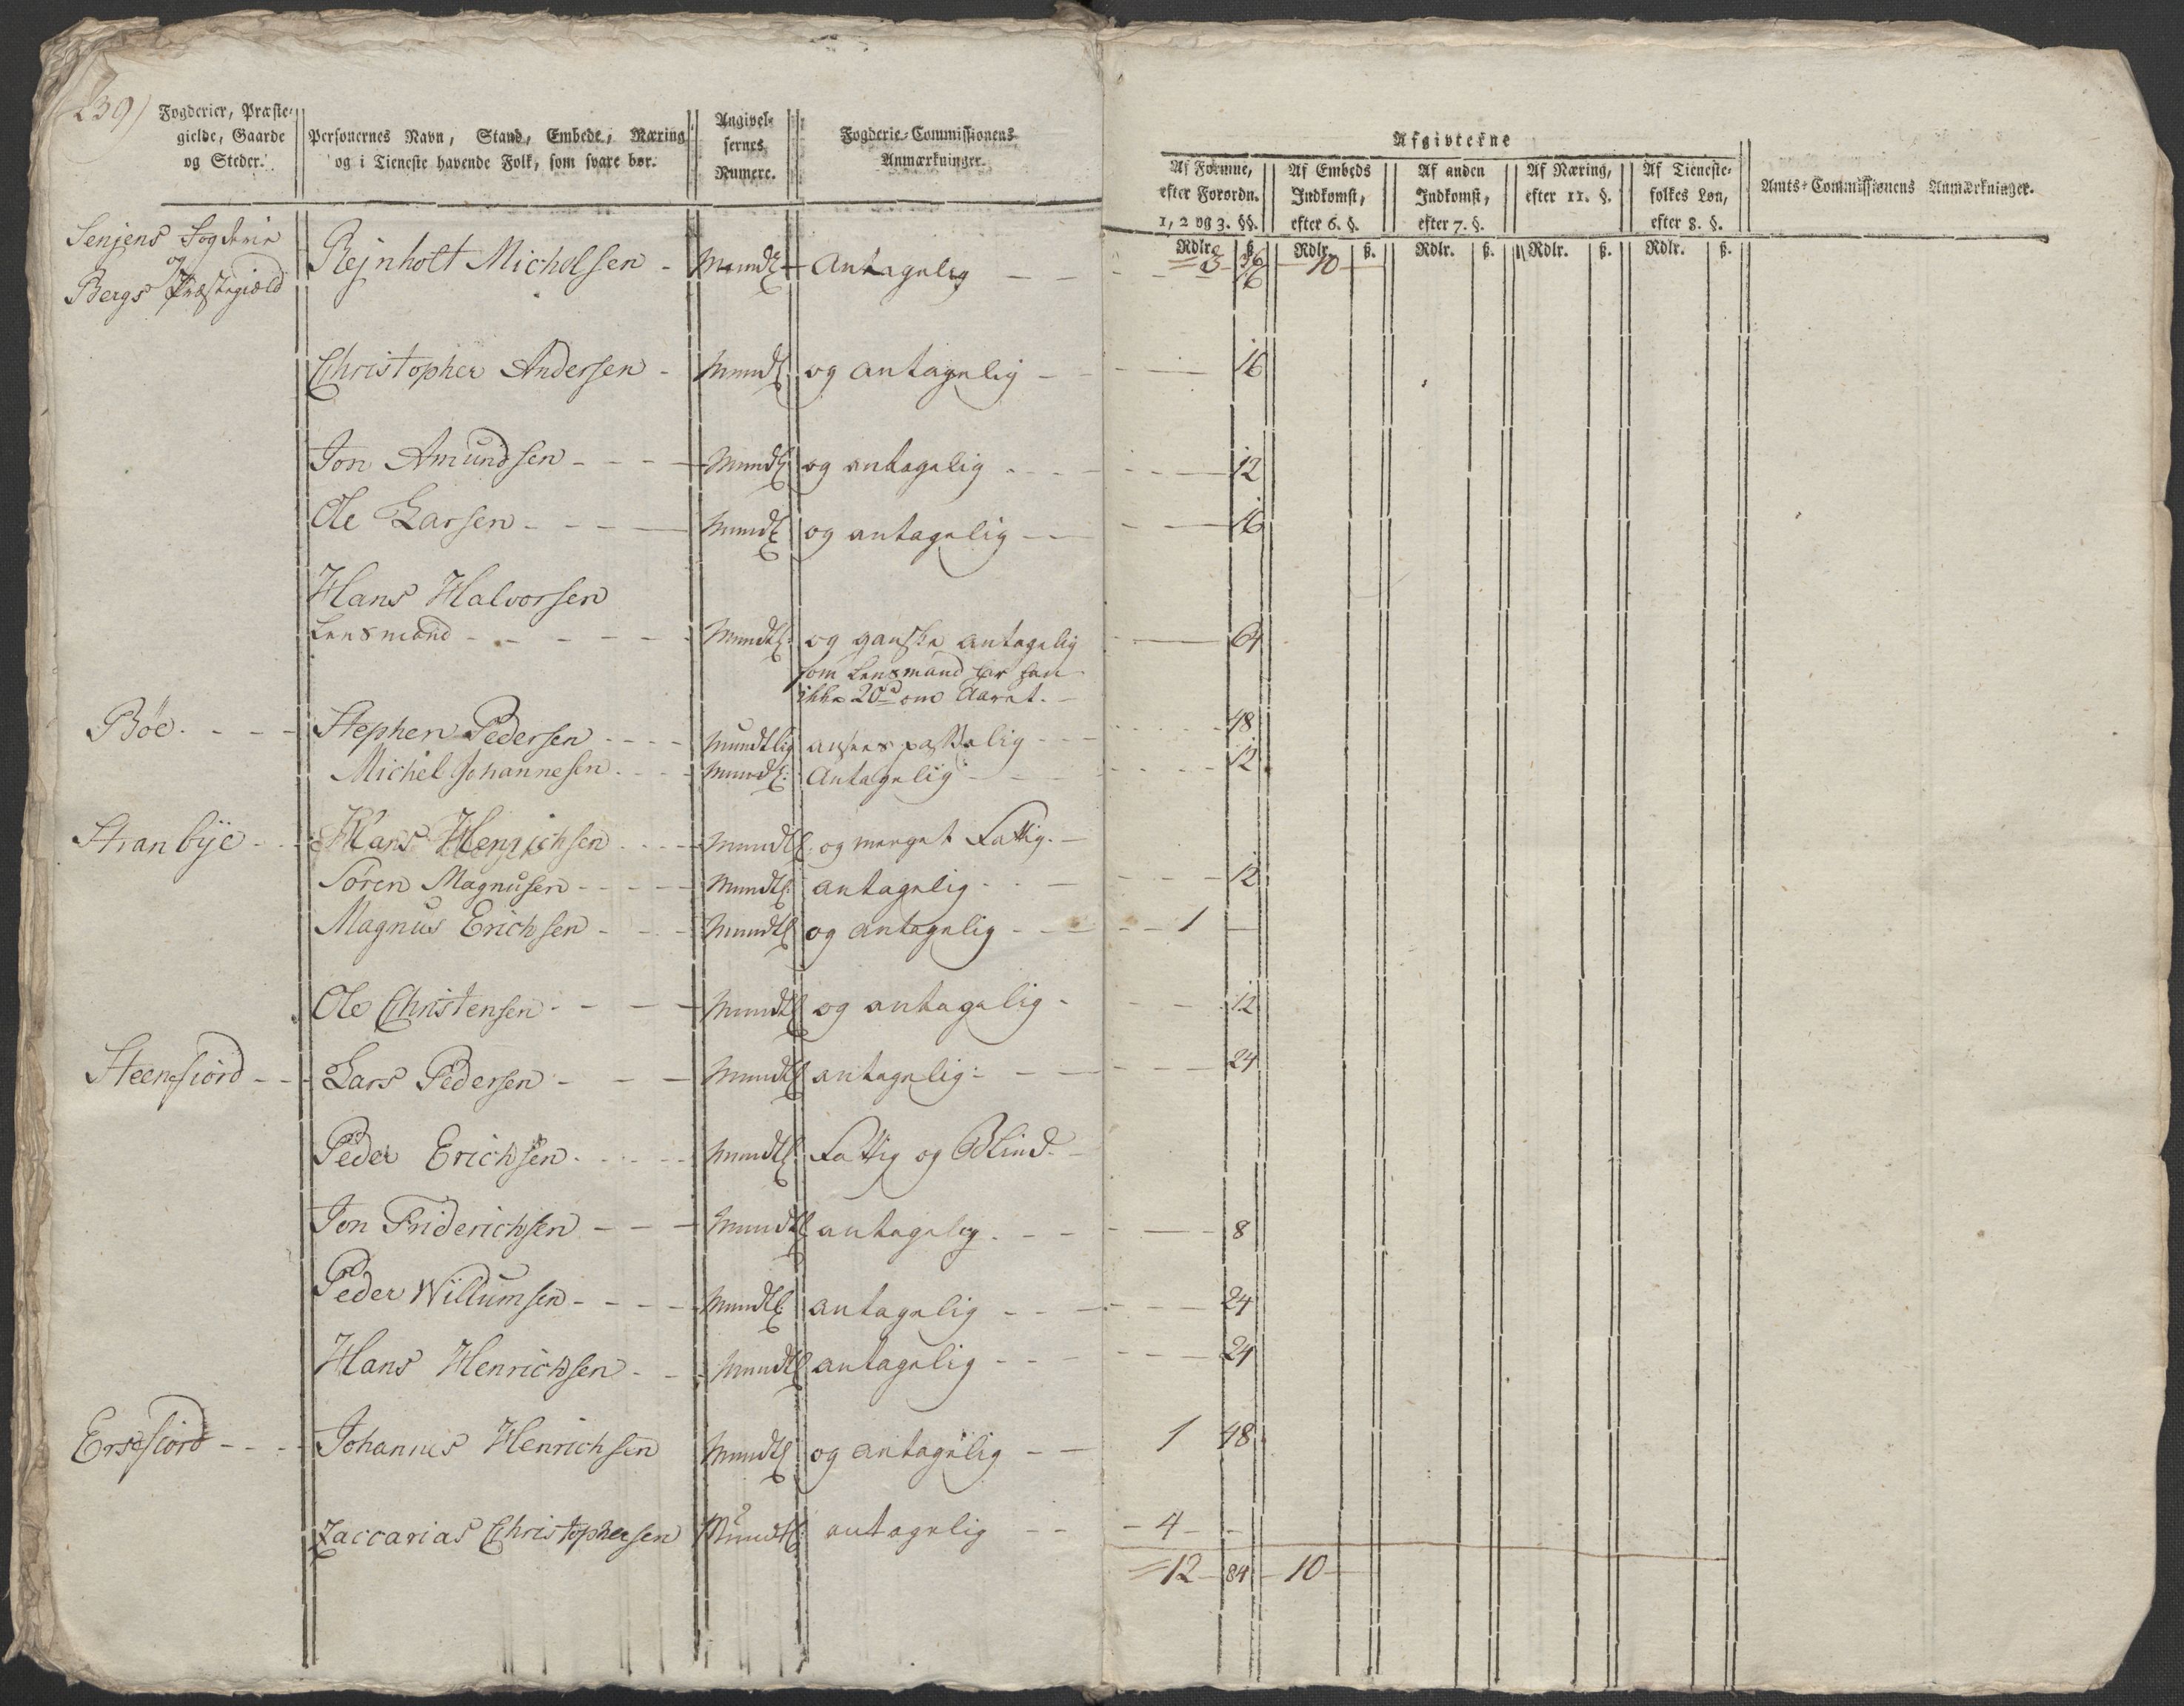 239)
Fogderier, Præste-
gielde, Gaarde
og Steder.
Personernes Navn, Stand, Embede, Næring
og i Tieneste havende Folk, som svare bør.
Angivel-
sernes
Numere.
Fogderie-Commissionens
Anmærkninger.
Afgivterne
Af Formue,
efter Forordn.
1, 2 og 3. §§.
Af Embeds
Indkomst,
efter 6. §.
Af anden
Indkomst,
efter 7. §.
Af Næring,
efter 11. §.
Af Tieneste-
folkes Løn,
efter 8. §.
Amts-Commissionens Anmærkninger.
Rdlr. ß. Rdlr. ß. Rdlr. ß. Rdlr. ß. Rdlr. ß.
Senjens Fogderie
og
Bergs Præstegield
3 36 10
Rejnholt Michelsen - Mundtl Antagelig - - 16
Christopher Andersen - Mundtl og antagelig - - 16
Jon Amundsen - - - Mundtl og antagelig - - - 12
Ole Larsen - - - - Mundtl og antagelig - - - 16
Hans Halvorsen
Lensmand - - - - - Mundtl: og ganske antagelig - 64
som Lensmand har han
ikke 20rd om Aaret. -
Bøe - - - Stephen Pedersen - - - Mundtlig ansees passelig - - - 48
Michel Johannesen - - - Mundtl: Antagelig - - - 12
Stranbÿe - - Hans Henrichsen - - - Mundtl og meeget Fattig. -
Søren Magnusen - - - - Mundtl: antagelig - - - 12
Magnus Erichsen - - - Mundtl og antagelig - - - 1 -
Ole Christensen - - - Mundtl og antagelig - - - 12
Steensfiord - - Lars Pedersen - - - Mundtl antagelig: - - - 24
Peder Erichsen - - - - Mundtl: Fattig og Blind -
Jon Friderichsen - - - Mundtl antagelig - - - 8
Peder Willumsen - - - - Mundtl antagelig - - - 24
Hans Henrichsen - - Mundtl antagelig - - - 24
Ersefiord - - - Johannes Henrichsen Mundtl og antagelig - - 1 48
Zaccarias Christophersen Mundtl: antagelig - - - 4 - -
12 84 10